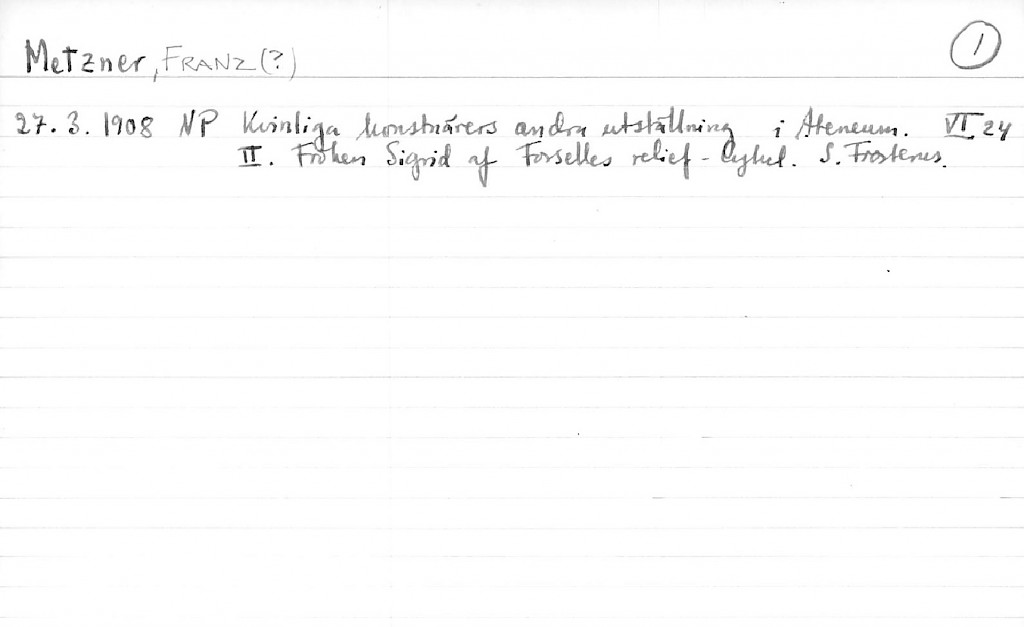 Metzner, FRANZ (?) 1
27. 3. 1908 NP Kvinliga konstnärers andra utställning i Ateneum. VI 24
II. Fröken Sigrid af Forselles relief-Cykel. S. Frosterus.